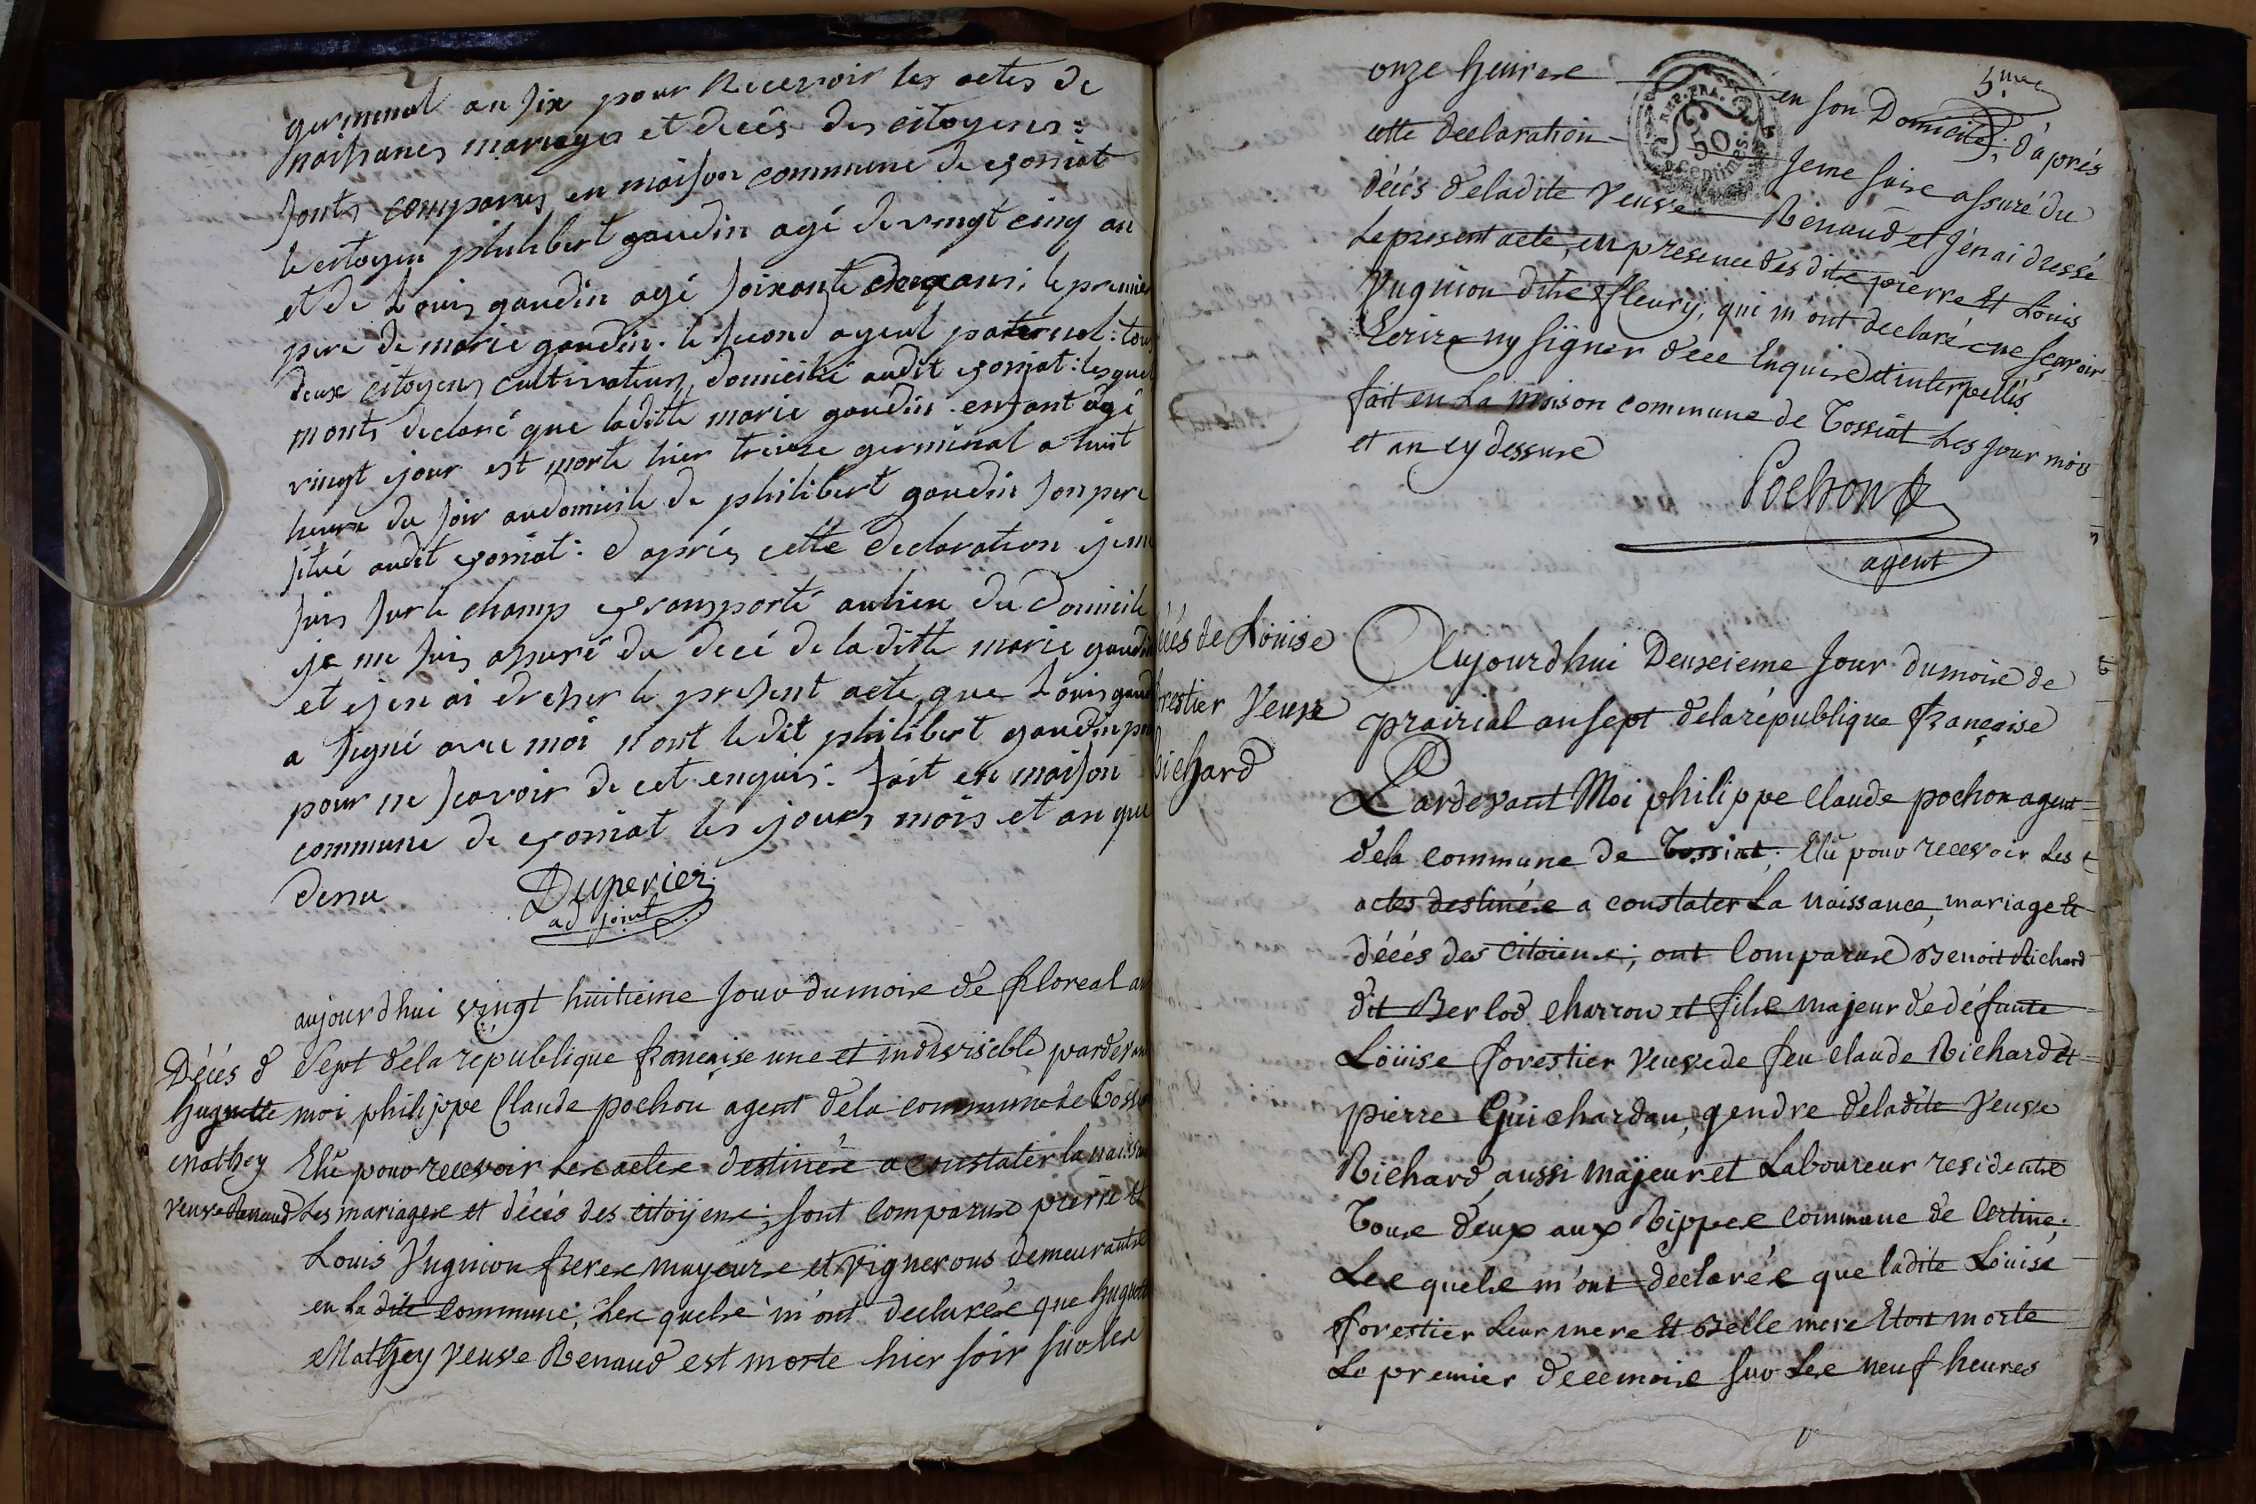 germinal an six pour Recevoir les actes de
naissances mariages et decés des citoyens:
sonts comparus en maison commune de tossiat
le citoyen philibert gaudin agé de vingt cinq an
et de Louis gaudin agé soixante deux ans; le premier
pere de marie gaudin. le second ayeul paternel: tous
deux citoyens cultivateurs domicilié audit tossiat: lesquel
monts declaré que laditte marie gaudin enfant agé
vingt jour est morte hier treize germinal a huit
heure du soir au domicile de philibert gaudin son pere
situé audit tossiat: d'aprés cette declaration je me
suis sur le champ transporté au lieu du domicile
je me suis assuré du decé de laditte marie gaudin
et j'en ai dresser le present acte que Louis gaud
a signé avec moi nont ledit philibert gaudin
pour ne scavoir de cet enquis: fait en maison
commune de tossiat les jours mois et an que
dessu
Duperier
adjoint
aujourdhui vingt huitieme Jour du mois de floreal an
Sept de la république française une et indivisible pardevan
moi philippe Claude pochon agent de la commune de Tossia
Elû pour recevoir Les actes destinés a constater la naissan
Les mariages et décés des citoÿens; sont comparus pierre et
Louis Vugnion freres mayeurs et vignerons demeurants
en La dite Commune; Les quels m'ont declarés que huguett
Mathey veuve Renaud est morte hier soir sur les
Décés d
huguette
mathey
veuve Renaud
5.me
onze heures en son Domicile; d'aprés
cette declaration Je me suis assuré du
décés de ladite Veuve Renaud et J'en ai dressé
Le présent acte, en presence des dits pierre Et Louis
Vugnion dits fleury, qui m'ont declaré ne sçavoir
Ecrire ny signer de ce Enquis et interpellés
fait en La maison commune de Tossiat Les Jour mois
et an cy dessus
Pochon
agent
cés de Loüise
restier Veuve
Richard
Aujourdhui Deuxieme Jour du mois de
prairial an sept de la république française
Pardevant Moi philippe Claude pochon agent
de la commune de Tossiat; Elû pour recevoir Les
actes destinés a constater La naissance, mariage Et
décés des Citoiens; ont Comparus Benoit Richard
dit Berlod charron et fils majeur de défunte
Loüise forestier Veuve de feu Claude Richard et
pierre Guichardan, gendre de ladite Veuve
Richard, aussi majeur et Laboureur residents
Tous deux aux Rippes commune de Certine.
Les quels m'ont declarés que ladite Loüise
forestier Leur mere Et Belle mere Etoit morte
Le premier de ce mois sur Les neuf heures
REP. FRA.
50
Centimes